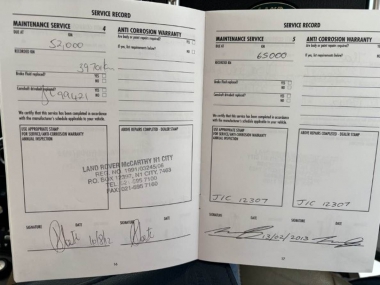 SERVICE RECORD
MAINTENANCE SERVICE 4
DUE AT KM
52,000
RECORDED KM
Brake fluid replaced? YES
NO
Camshaft drivebelt replaced? YES
NO
99421
We certify that the service has been completed in accordance
with the manufacturer's schedule applicable to your vehicle.
USE APPROPRIATE STAMP
FOR SERVICE/ANTI-CORROSION WARRANTY
ANNUAL INSPECTION
SIGNATURE DATE
ANTI CORROSION WARRANTY
Are body or paint repairs required? YES
NO
If yes, list requirements below?
ABOVE REPAIRS COMPLETED - DEALER STAMP
LAND ROVER McCARTHY N1 CITY
REG. NO. 1991/03245/06
P.O. BOX 12197, N1 CITY, 7463
SIGNATURE DATE
SERVICE RECORD
MAINTENANCE SERVICE 5
DUE AT KM
65000
RECORDED KM
Brake fluid replaced? YES
NO
Camshaft drivebelt replaced? YES
NO
We certify that the service has been completed in accordance
with the manufacturer's schedule applicable to your vehicle.
USE APPROPRIATE STAMP
FOR SERVICE/ANTI-CORROSION WARRANTY
ANNUAL INSPECTION
JIC 12307
SIGNATURE DATE
13/02/2013
ANTI CORROSION WARRANTY
Are body or paint repairs required? YES
NO
If yes, list requirements below?
ABOVE REPAIRS COMPLETED - DEALER STAMP
JIC 12307
SIGNATURE DATE